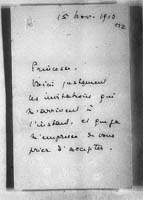 15 Nov. 1910
112
Princesse,
Voici justement
les invitations qui
m'arrivent à
l'instant, et que je
m'empresse de vous
prier d'accepter.